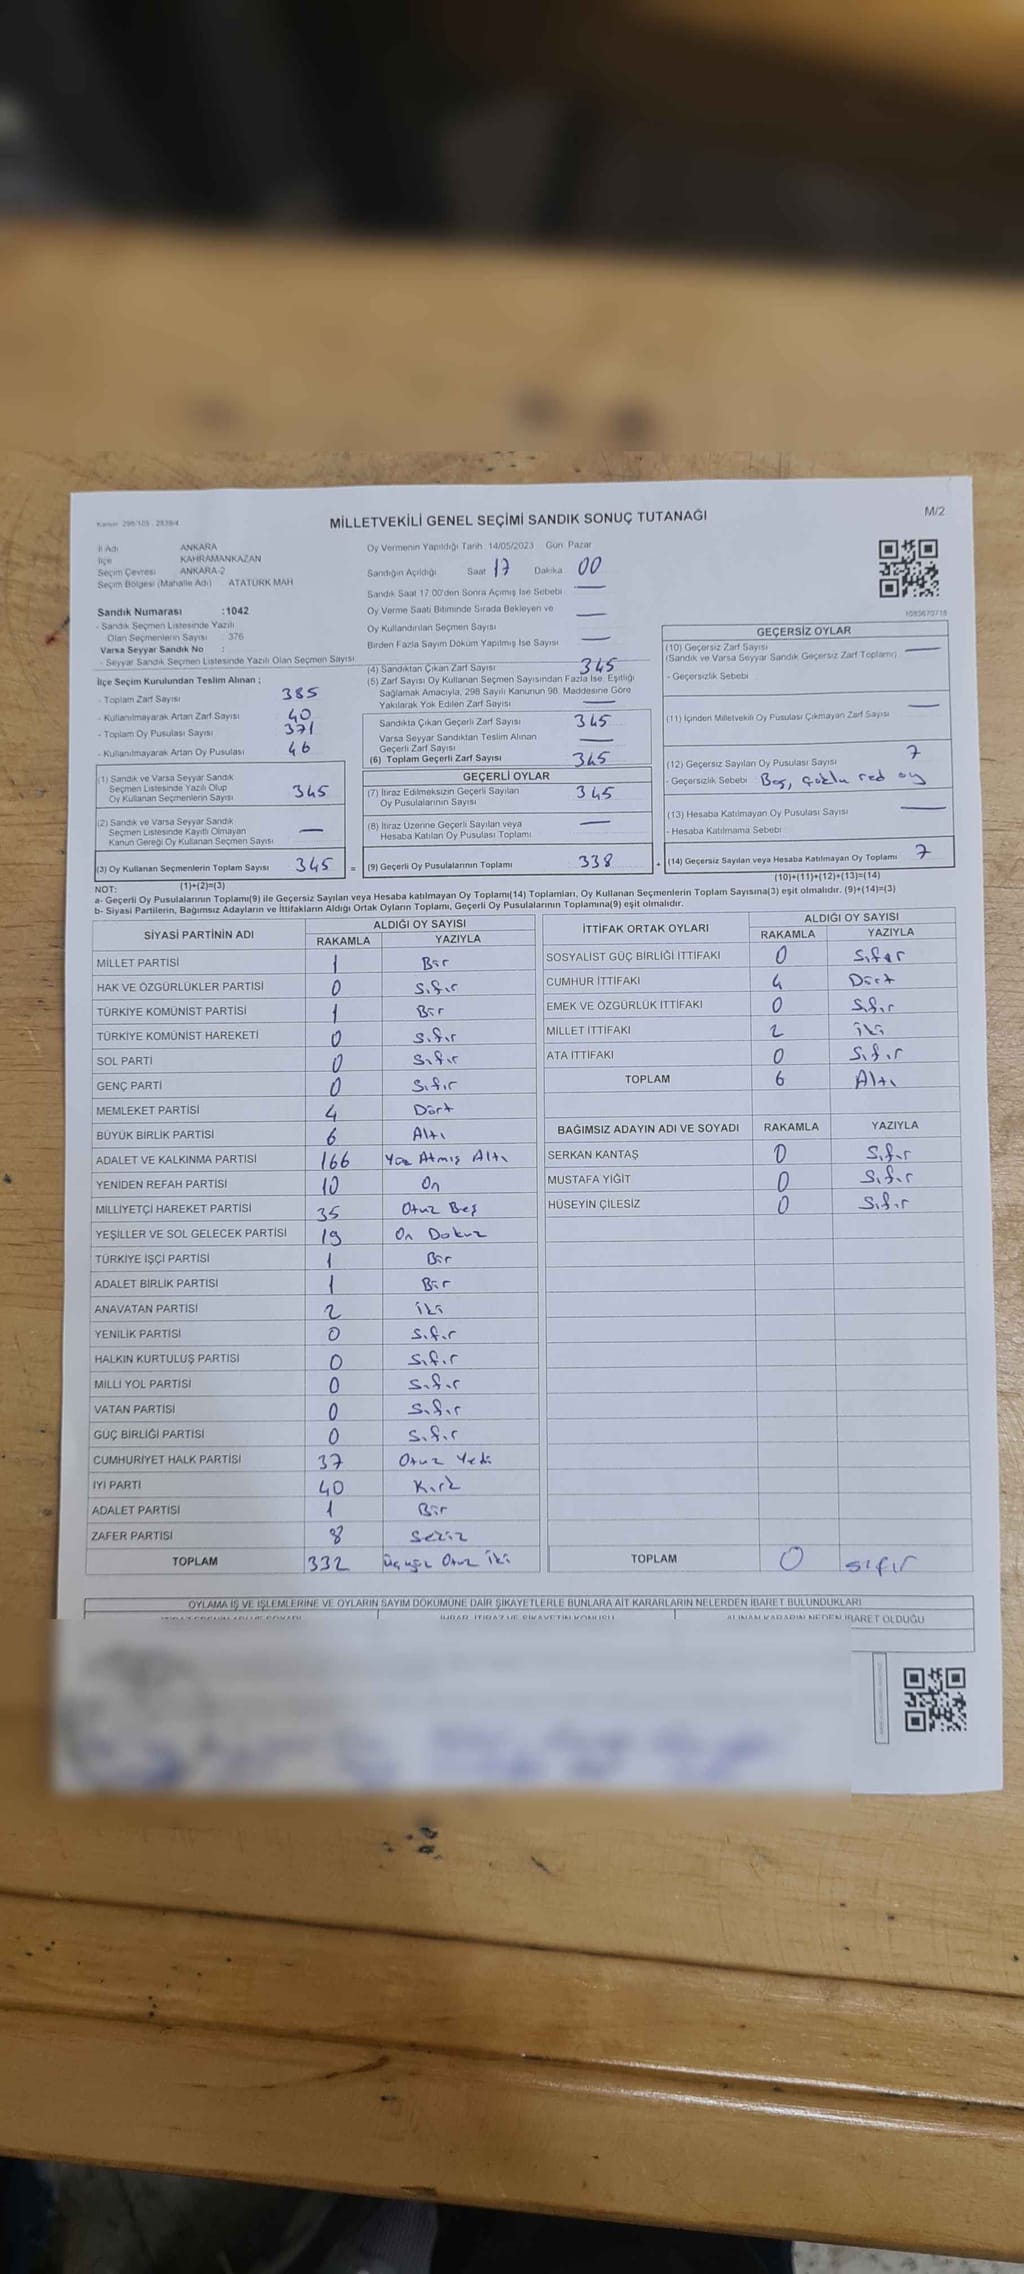 Kanun 298/105 , 2839/4
MİLLETVEKİLİ GENEL SEÇİMİ SANDIK SONUÇ TUTANAĞI
M/2
İl Adı ANKARA
İlçe KAHRAMANKAZAN
Seçim Çevresi ANKARA-2
Seçim Bölgesi (Mahalle Adı) ATATÜRK MAH
Sandık Numarası :1042
- Sandık Seçmen Listesinde Yazılı
Olan Seçmenlerin Sayısı : 376
Varsa Seyyar Sandık No :
- Seyyar Sandık Seçmen Listesinde Yazılı Olan Seçmen Sayısı
İlçe Seçim Kurulundan Teslim Alınan ;
- Toplam Zarf Sayısı 385
- Kullanılmayarak Artan Zarf Sayısı 40
- Toplam Oy Pusulası Sayısı 371
- Kullanılmayarak Artan Oy Pusulası 46
(1) Sandık ve Varsa Seyyar Sandık
Seçmen Listesinde Yazılı Olup
Oy Kullanan Seçmenlerin Sayısı 345
(2) Sandık ve Varsa Seyyar Sandık
Seçmen Listesinde Kayıtlı Olmayan
Kanun Gereği Oy Kullanan Seçmen Sayısı —
(3) Oy Kullanan Seçmenlerin Toplam Sayısı 345 =
(1)+(2)=(3)
Oy Vermenin Yapıldığı Tarih 14/05/2023 Gün Pazar
Sandığın Açıldığı Saat 17 Dakika 00
Sandık Saat 17.00'den Sonra Açılmış İse Sebebi —
Oy Verme Saati Bitiminde Sırada Bekleyen ve
Oy Kullandırılan Seçmen Sayısı —
Birden Fazla Sayım Döküm Yapılmış İse Sayısı —
(4) Sandıktan Çıkan Zarf Sayısı 345
(5) Zarf Sayısı Oy Kullanan Seçmen Sayısından Fazla İse, Eşitliği
Sağlamak Amacıyla, 298 Sayılı Kanunun 98. Maddesine Göre
Yakılarak Yok Edilen Zarf Sayısı —
Sandıkta Çıkan Geçerli Zarf Sayısı 345
Varsa Seyyar Sandıktan Teslim Alınan
Geçerli Zarf Sayısı —
(6) Toplam Geçerli Zarf Sayısı 345
GEÇERLİ OYLAR
(7) İtiraz Edilmeksizin Geçerli Sayılan
Oy Pusulalarının Sayısı 345
(8) İtiraz Üzerine Geçerli Sayılan veya
Hesaba Katılan Oy Pusulası Toplamı —
(9) Geçerli Oy Pusulalarının Toplamı 338 +
1083670718
GEÇERSİZ OYLAR
(10) Geçersiz Zarf Sayısı —
(Sandık ve Varsa Seyyar Sandık Geçersiz Zarf Toplamı)
- Geçersizlik Sebebi
(11) İçinden Milletvekili Oy Pusulası Çıkmayan Zarf Sayısı —
(12) Geçersiz Sayılan Oy Pusulası Sayısı 7
- Geçersizlik Sebebi Boş, çoklu red oy
(13) Hesaba Katılmayan Oy Pusulası Sayısı —
- Hesaba Katılmama Sebebi
(14) Geçersiz Sayılan veya Hesaba Katılmayan Oy Toplamı 7
(10)+(11)+(12)+(13)=(14)
NOT:
a- Geçerli Oy Pusulalarının Toplamı(9) ile Geçersiz Sayılan veya Hesaba katılmayan Oy Toplamı(14) Toplamları, Oy Kullanan Seçmenlerin Toplam Sayısına(3) eşit olmalıdır. (9)+(14)=(3)
b- Siyasi Partilerin, Bağımsız Adayların ve İttifakların Aldığı Ortak Oyların Toplamı, Geçerli Oy Pusulalarının Toplamına(9) eşit olmalıdır.
SİYASİ PARTİNİN ADI ALDIĞI OY SAYISI
RAKAMLA YAZIYLA
MİLLET PARTİSİ 1 Bir
HAK VE ÖZGÜRLÜKLER PARTİSİ 0 Sıfır
TÜRKİYE KOMÜNİST PARTİSİ 1 Bir
TÜRKİYE KOMÜNİST HAREKETİ 0 Sıfır
SOL PARTİ 0 Sıfır
GENÇ PARTİ 0 Sıfır
MEMLEKET PARTİSİ 4 Dört
BÜYÜK BİRLİK PARTİSİ 6 Altı
ADALET VE KALKINMA PARTİSİ 166 Yüz Atmış Altı
YENİDEN REFAH PARTİSİ 10 On
MİLLİYETÇİ HAREKET PARTİSİ 35 Otuz Beş
YEŞİLLER VE SOL GELECEK PARTİSİ 19 On Dokuz
TÜRKİYE İŞÇİ PARTİSİ 1 Bir
ADALET BİRLİK PARTİSİ 1 Bir
ANAVATAN PARTİSİ 2 İki
YENİLİK PARTİSİ 0 Sıfır
HALKIN KURTULUŞ PARTİSİ 0 Sıfır
MİLLİ YOL PARTİSİ 0 Sıfır
VATAN PARTİSİ 0 Sıfır
GÜÇ BİRLİĞİ PARTİSİ 0 Sıfır
CUMHURİYET HALK PARTİSİ 37 Otuz Yedi
İYİ PARTİ 40 Kırk
ADALET PARTİSİ 1 Bir
ZAFER PARTİSİ 8 Sekiz
TOPLAM 332 Üçyüz Otuz İki
İTTİFAK ORTAK OYLARI ALDIĞI OY SAYISI
RAKAMLA YAZIYLA
SOSYALİST GÜÇ BİRLİĞİ İTTİFAKI 0 Sıfır
CUMHUR İTTİFAKI 4 Dört
EMEK VE ÖZGÜRLÜK İTTİFAKI 0 Sıfır
MİLLET İTTİFAKI 2 İki
ATA İTTİFAKI 0 Sıfır
TOPLAM 6 Altı
BAĞIMSIZ ADAYIN ADI VE SOYADI RAKAMLA YAZIYLA
SERKAN KANTAŞ 0 Sıfır
MUSTAFA YİĞİT 0 Sıfır
HÜSEYİN ÇİLESİZ 0 Sıfır
TOPLAM 0 sıfır
OYLAMA İŞ VE İŞLEMLERİNE VE OYLARIN SAYIM DÖKÜMÜNE DAİR ŞİKAYETLERLE BUNLARA AİT KARARLARIN NELERDEN İBARET BULUNDUKLARI
İTİRAZ EDENİN ADI VE SOYADI İHBAR, İTİRAZ VE ŞİKAYETİN KONUSU ALINAN KARARIN NEDEN İBARET OLDUĞU